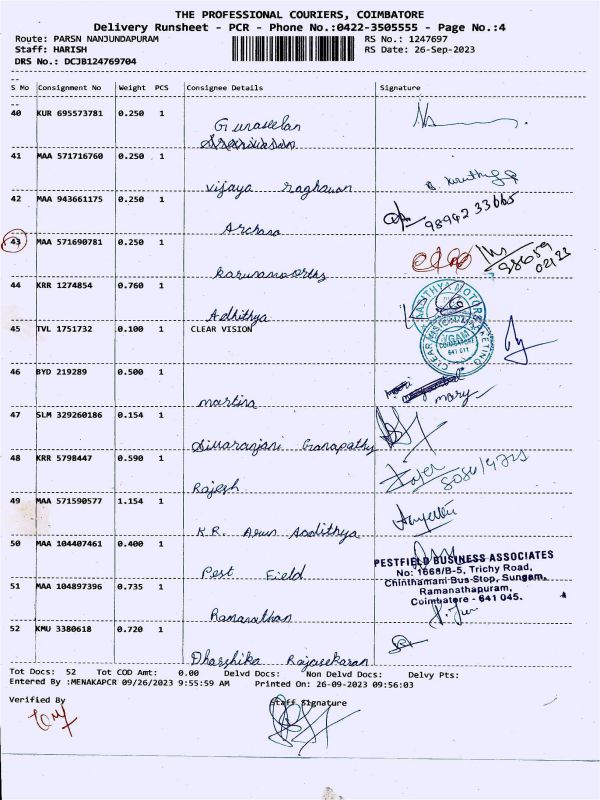 THE PROFESSIONAL COURIERS, COIMBATORE
Delivery Runsheet - PCR - Phone No.:0422-3505555 - Page No.:4
Route: PARSN NANJUNDAPURAM RS No.: 1247697
Staff: HARISH RS Date: 26-Sep-2023
DRS No.: DCJB124769704
S Mo Consignment No Weight PCS Consignee Details Signature
40 KUR 695573781 0.250 1
Gunaseelan
41 MAA 571716760 0.250 1
vijaya raghavan
42 MAA 943661175 0.250 1
Archana 98942 33665
43 MAA 571690781 0.250 1
Karunamoorthy 98659
02123
44 KRR 1274854 0.760 1
Adhithya
45 TVL 1751732 0.100 1 CLEAR VISION
COIMBATORE
641 011
46 BYD 219289 0.500 1
Martina mary
47 SLM 329260186 0.154 1
Sivaranjani Ganapathy
48 KRR 5798447 0.590 1
Rajesh
49 MAA 571590577 1.154 1
K.R. Arun Aadithya
50 MAA 104407461 0.400 1
Pest Field
PESTFIELD BUSINESS ASSOCIATES
No: 1668/B-5, Trichy Road,
Chinthamani Bus Stop, Sungam,
Ramanathapuram,
Coimbatore - 641 045.
51 MAA 104897396 0.735 1
Ramanathan
52 KMU 3380618 0.720 1
Dharshika Rajasekaran
Tot Docs: 52 Tot COD Amt: 0.00 Delvd Docs: Non Delvd Docs: Delvy Pts:
Entered By :MENAKAPCR 09/26/2023 9:55:59 AM Printed On: 26-09-2023 09:56:03
Verified By Staff Signature